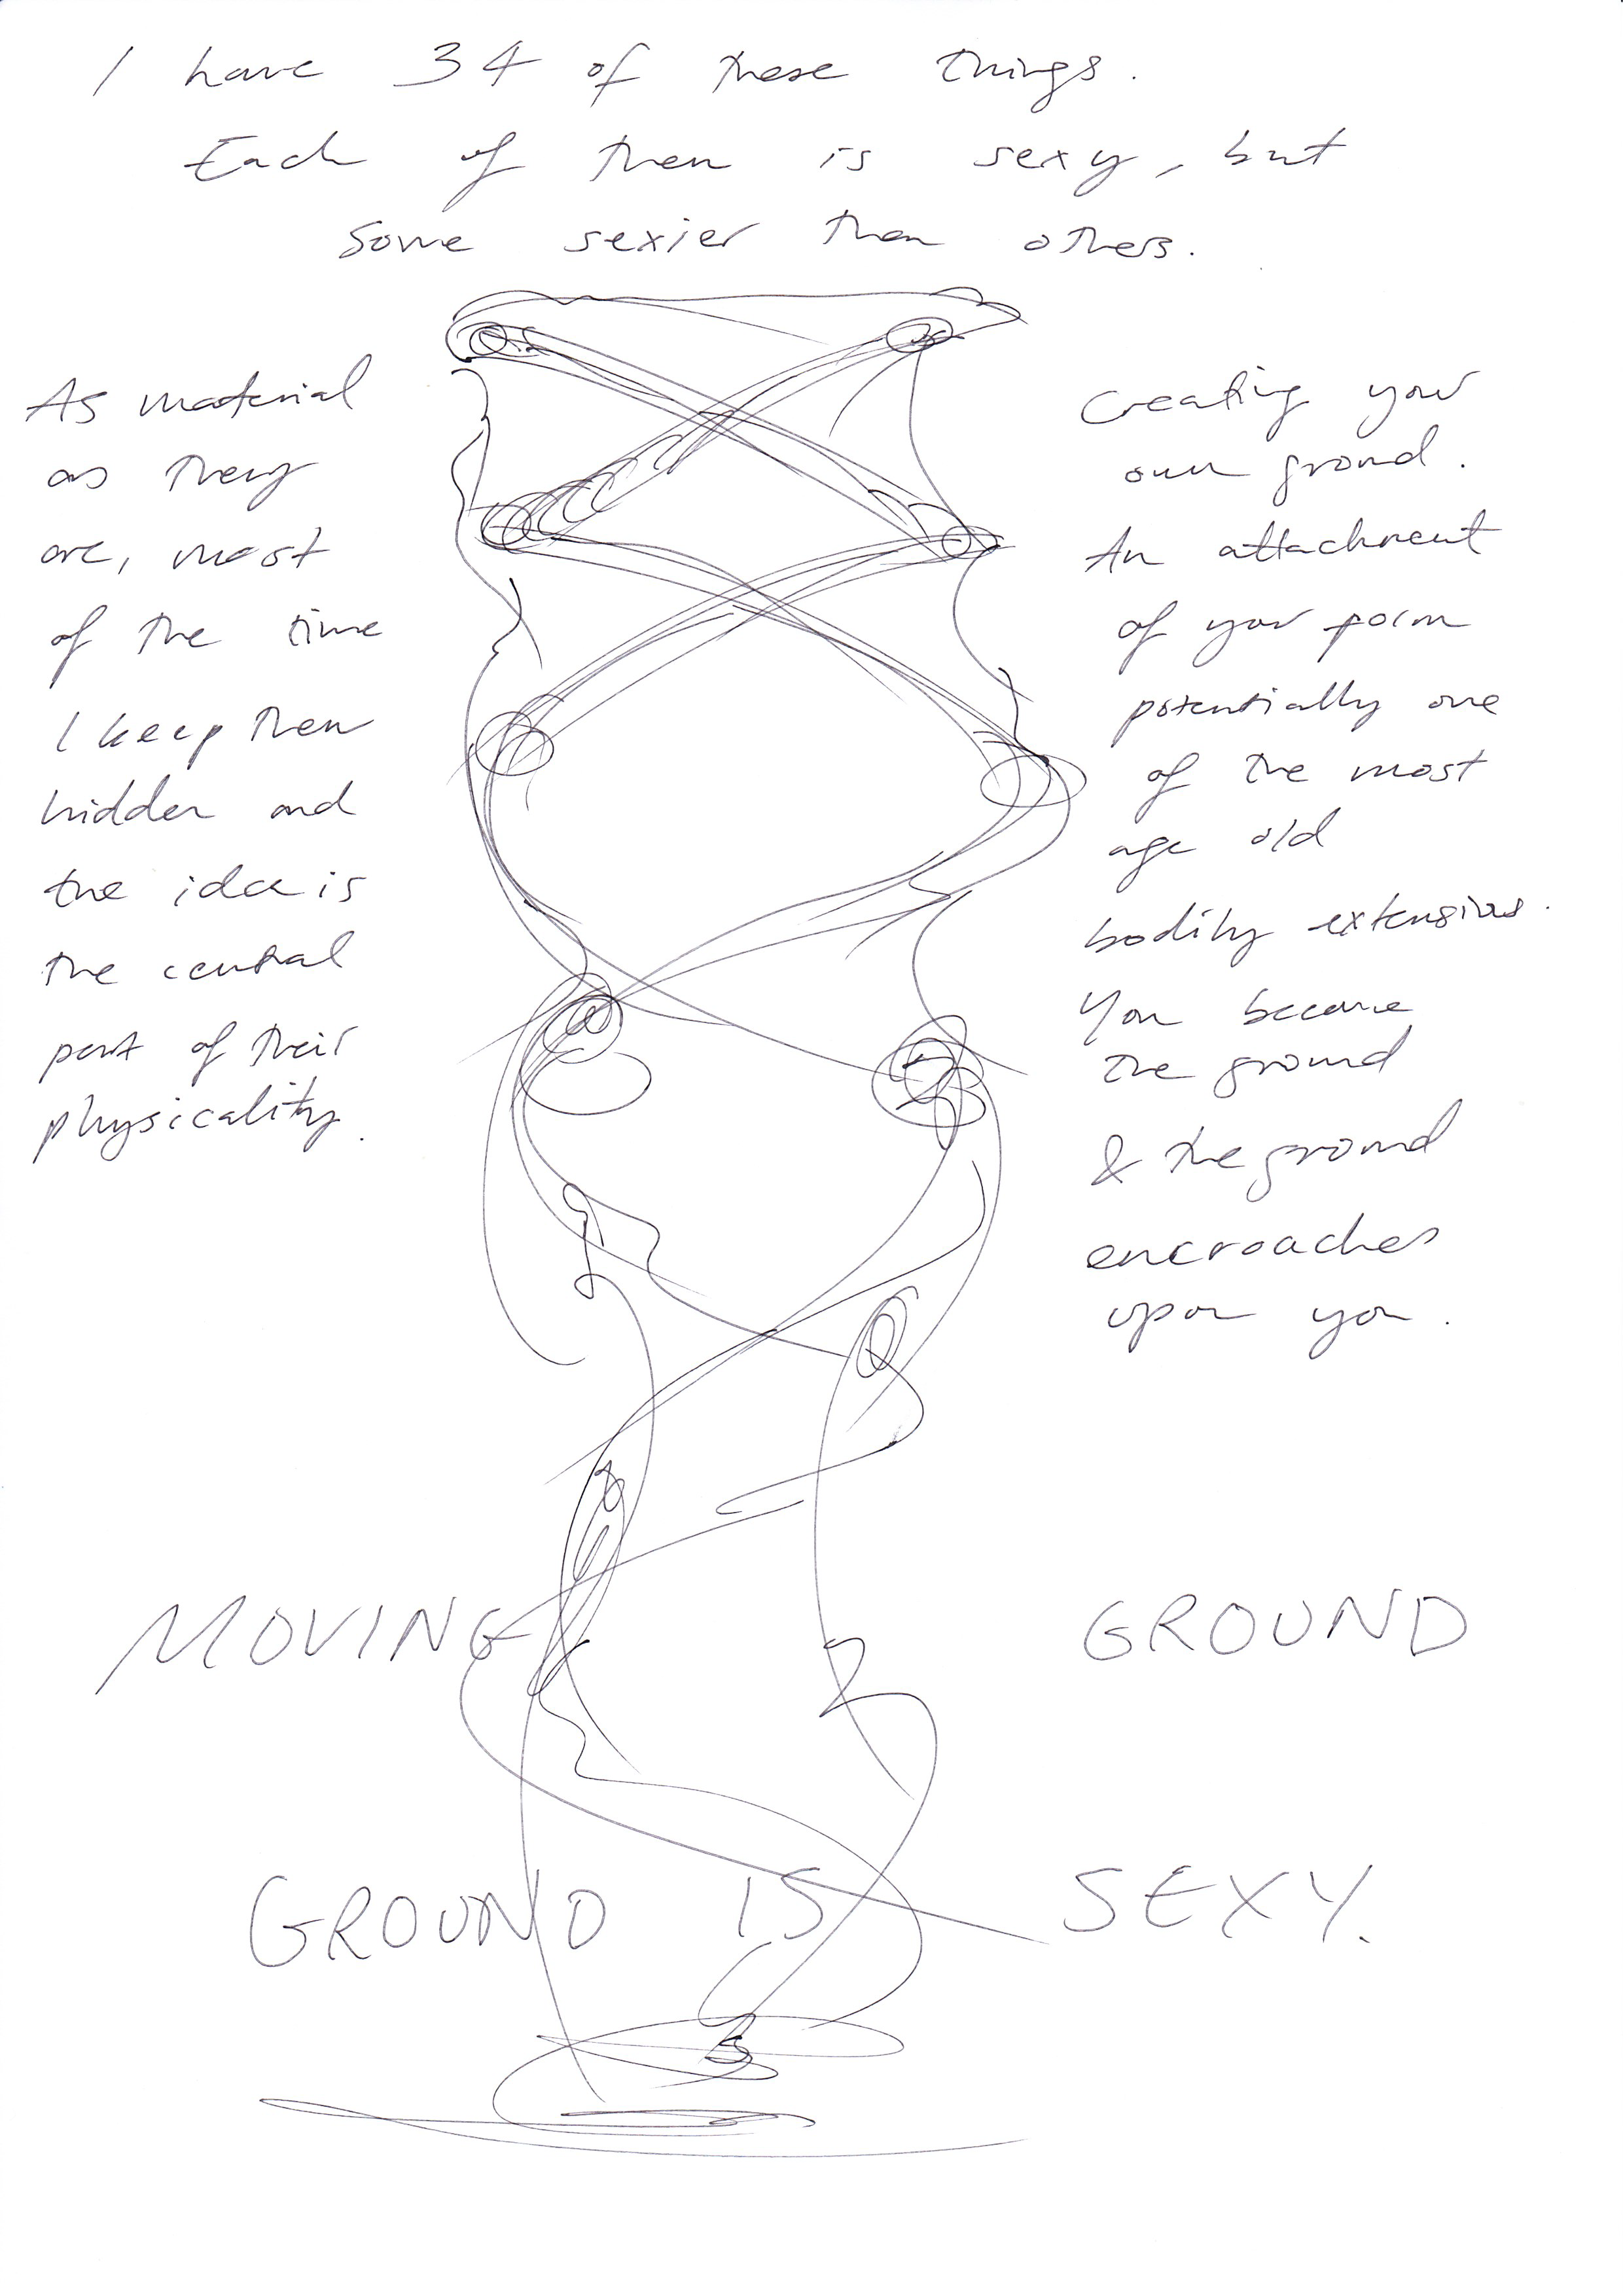 I have 34 of these things.
Each of them is sexy, but
some sexier then others.
As material
as they
are, most
of the time
I keep them
hidden and
the idea is
the central
part of their
physicality.
Creating your
own ground.
An attachment
of your form
potentially one
of the most
age old
bodily extensions.
You become
the ground
& the ground
encroaches
upon you.
MOVING GROUND
GROUND IS SEXY.